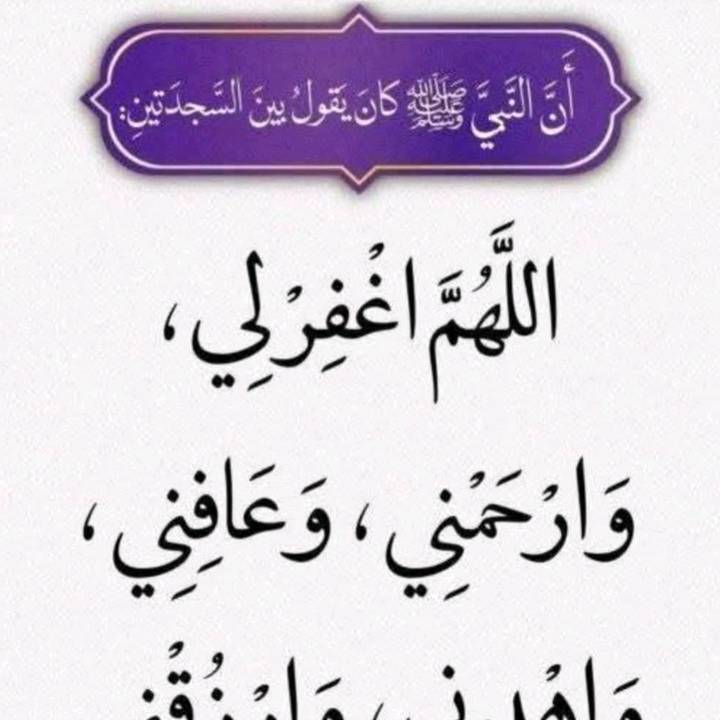 أَنَّ النَّبِيَّ ﷺ كَانَ يَقُولُ بَينَ السَّجدَتَينِ:
اللَّهُمَّ اغْفِرْ لِي ،
وَارْحَمْنِي ، وَعَافِنِي ،
وَاهْدِنِي ، وَارْزُقْنِي